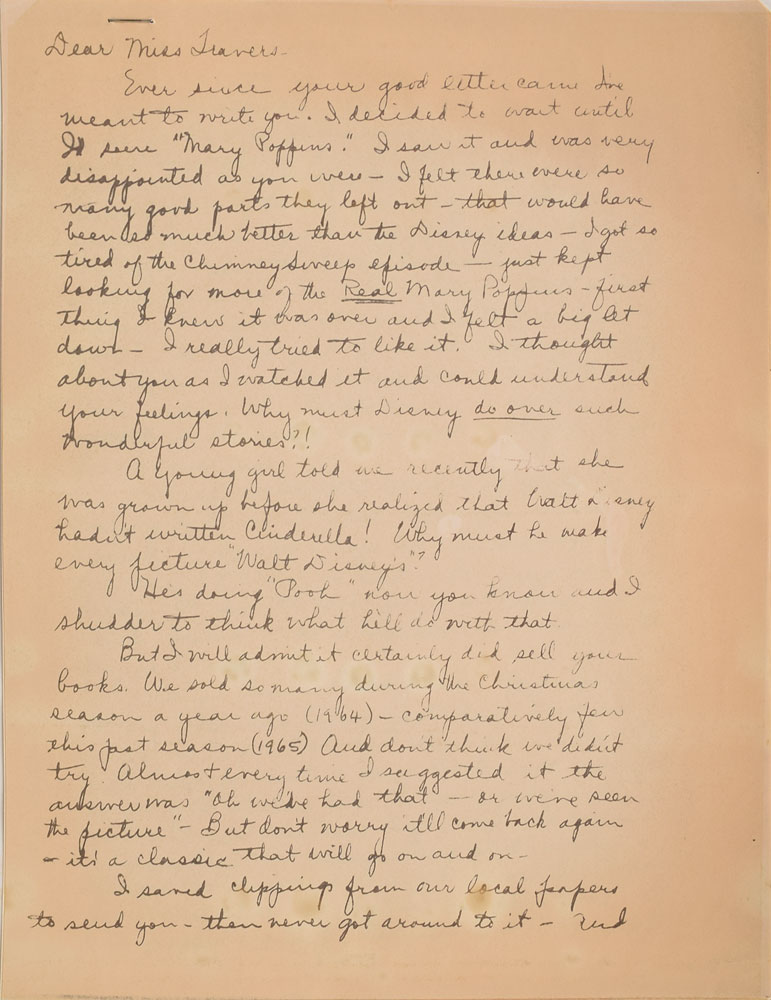 Dear Miss Travers-
Ever since your good letter came I've
meant to write you. I decided to wait until
I'd seen "Mary Poppins." I saw it and was very
disappointed as you were - I felt there were so
many good parts they left out - that would have
been so much better than the Disney ideas - I got so
tired of the Chimney Sweep episode - just kept
looking for more of the Real Mary Poppins - first
thing I knew it was over and I felt a big let
down - I really tried to like it. I thought
about you as I watched it and could understand
your feelings. Why must Disney do over such
wonderful stories?!
A young girl told me recently that she
was grown up before she realized that Walt Disney
hadn't written Cinderella! Why must he make
every picture "Walt Disney's"?
He's doing "Pooh" now you know and I
shudder to think what he'll do with that.
But I will admit it certainly did sell your
books. We sold so many during the Christmas
season a year ago (1964) - comparatively few
this past season (1965) And don't think we didn't
try. Almost every time I suggested it the
answer was "Oh we've had that - or we've seen
the picture" - But don't worry it'll come back again
- it's a classic that will go on and on -
I saved clippings from our local papers
to send you - then never got around to it - And